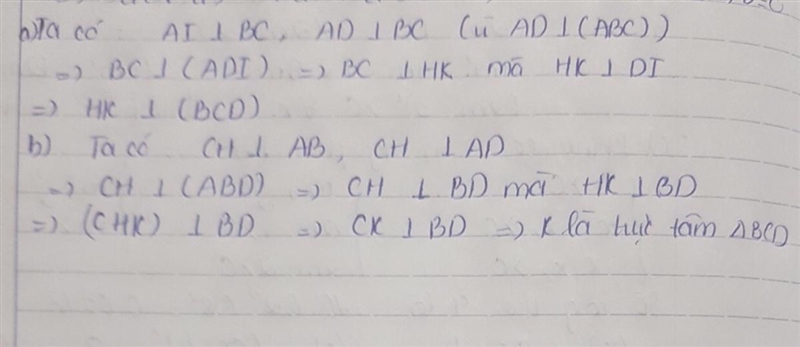 a) Ta có AI ⊥ BC, AD ⊥ BC (vì AD ⊥ (ABC))
=> BC ⊥ (ADI) => BC ⊥ HK mà HK ⊥ DI
=> HK ⊥ (BCD)
b) Ta có CH ⊥ AB, CH ⊥ AD
=> CH ⊥ (ABD) => CH ⊥ BD mà HK ⊥ BD
=> (CHK) ⊥ BD => CK ⊥ BD => K là trực tâm ΔBCD